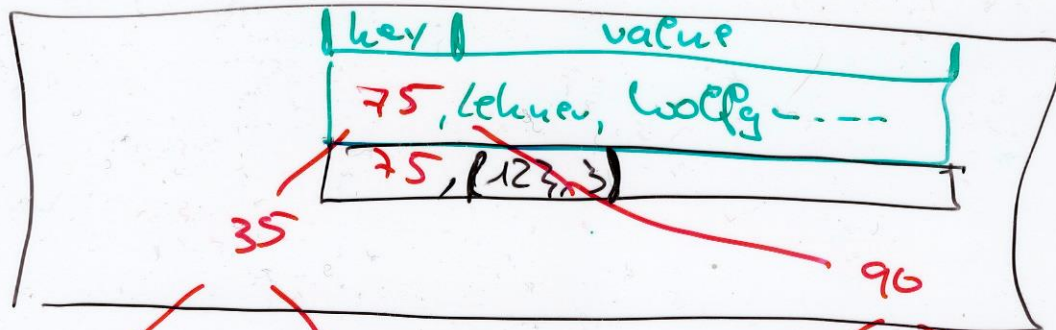 key value
75, Lehner, Wolfg-....
75, (123, 3)
35
90